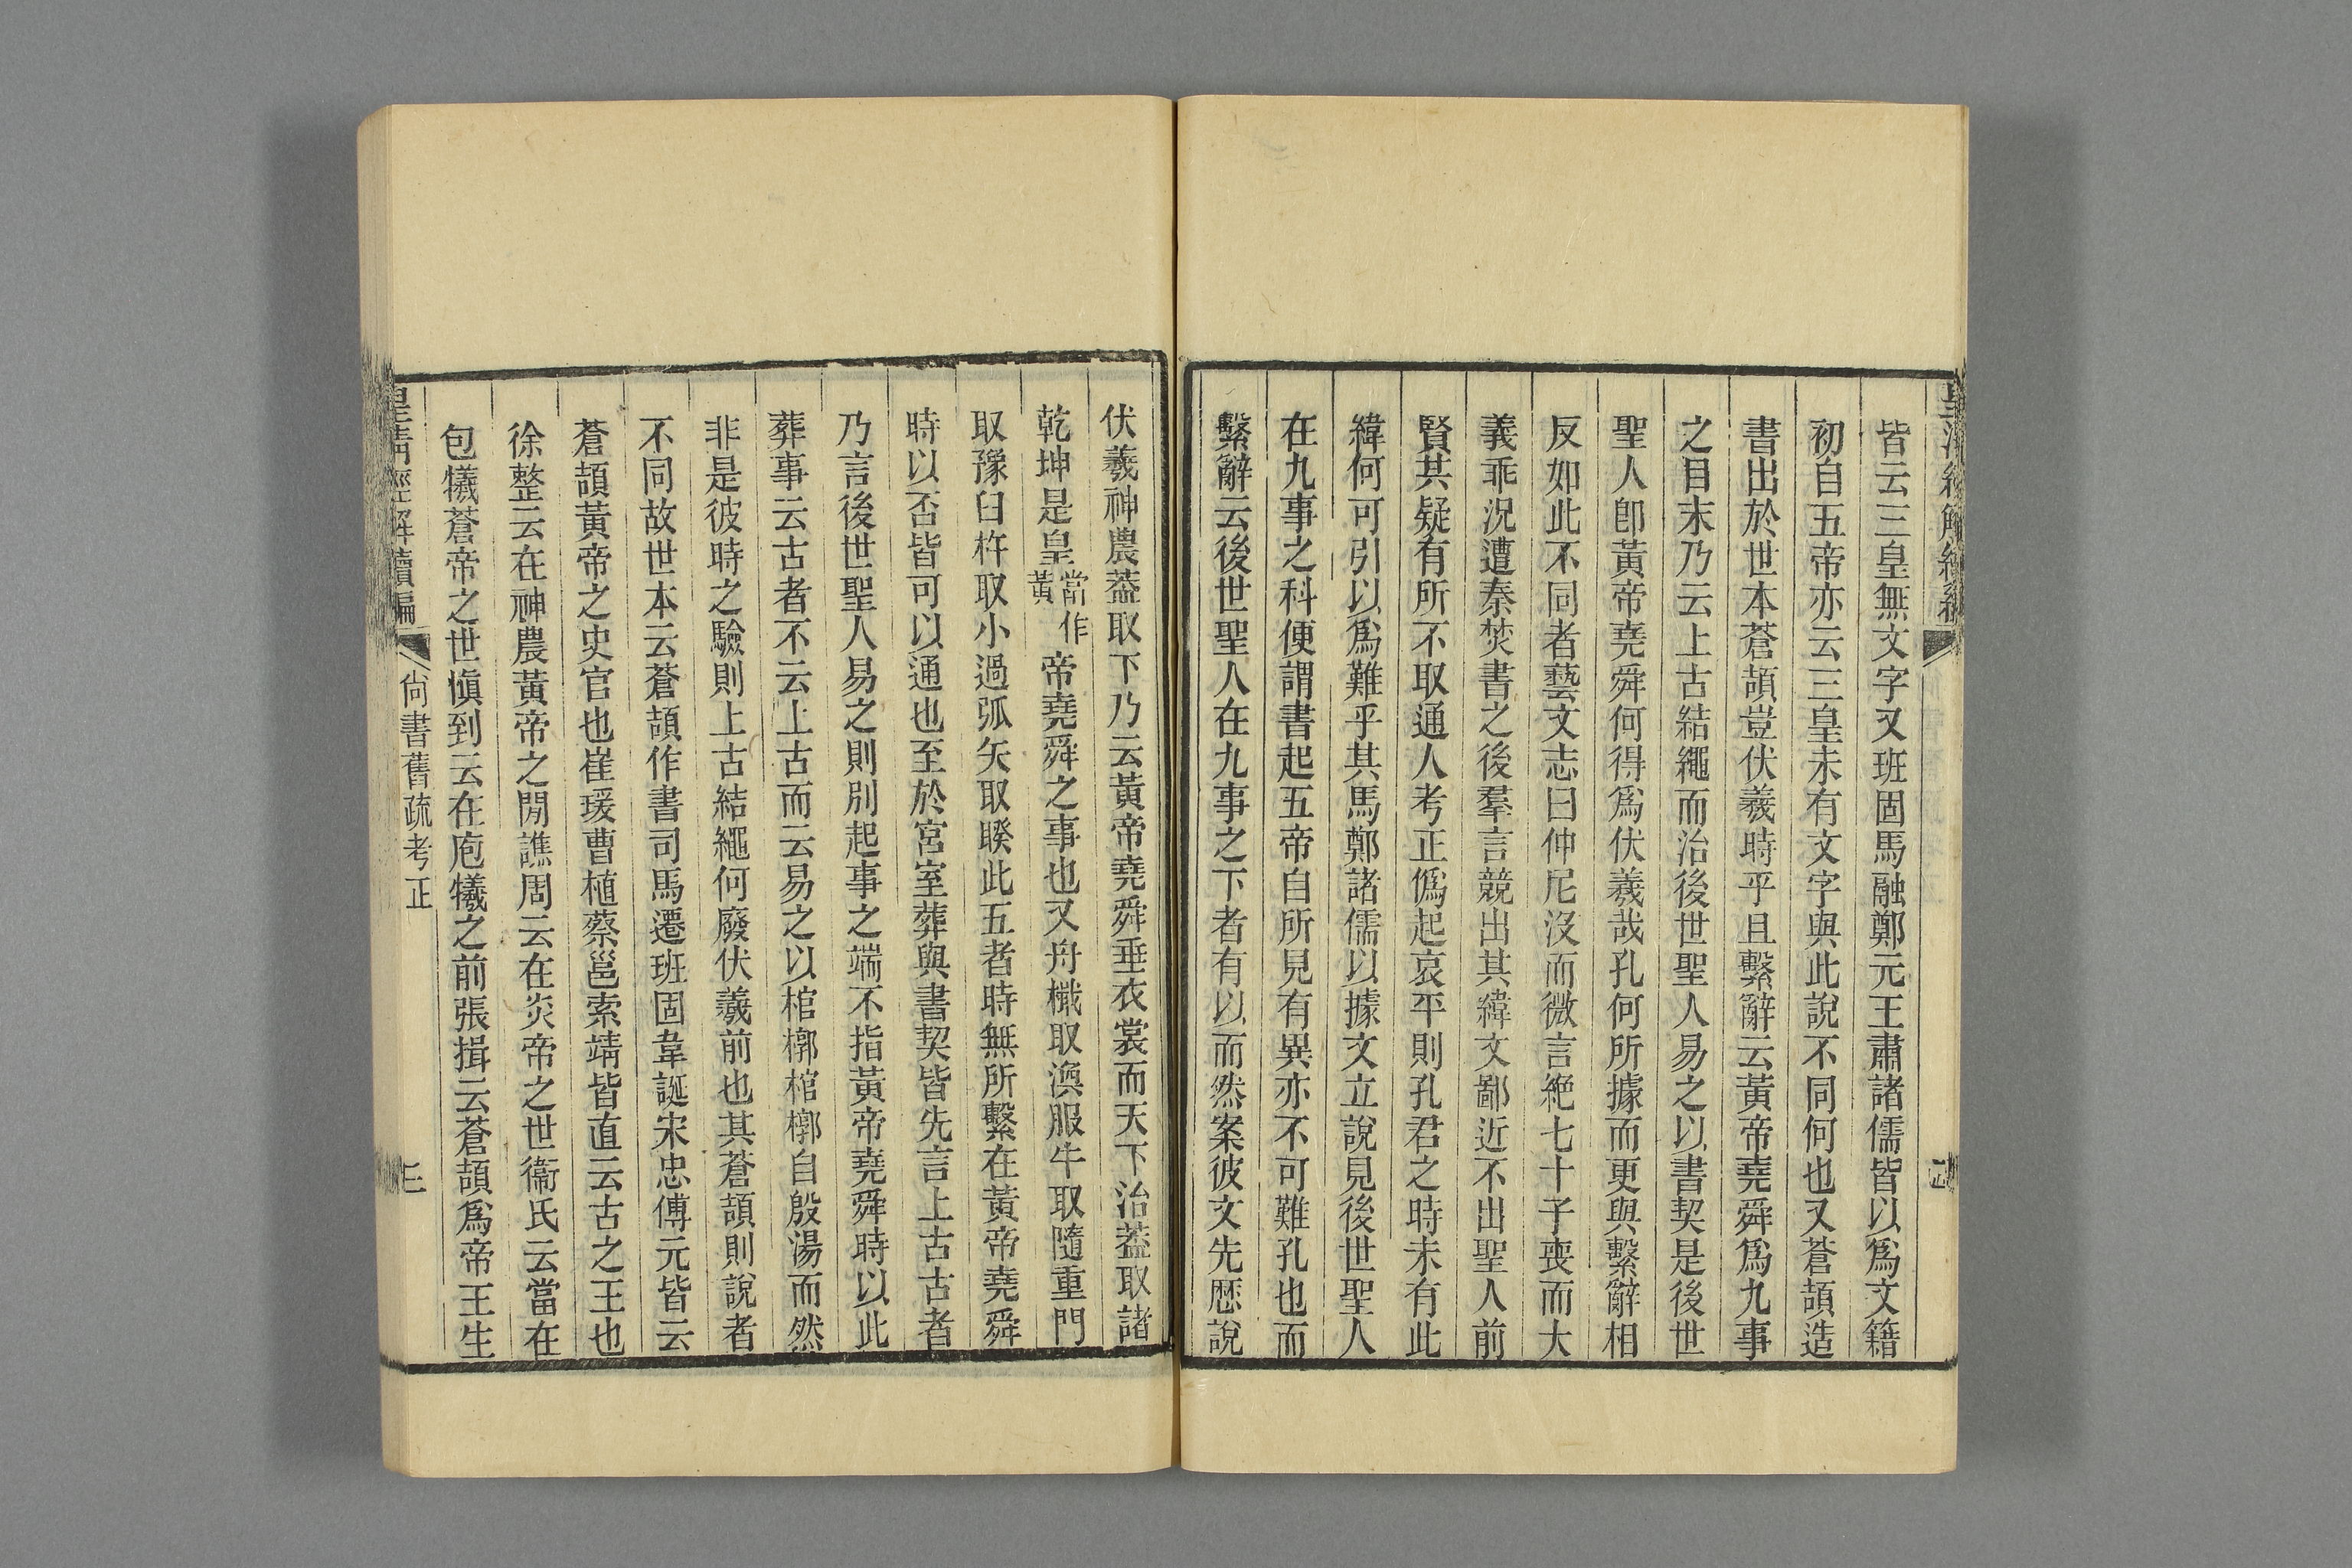 皆云三皇無文字又班固馬融鄭元王肅諸儒皆以爲文籍
初自五帝亦云三皇未有文字與此說不同何也又蒼頡造
書出於世本蒼頡豈伏羲時乎且繫辭云黃帝堯舜爲九事
之目末乃云上古結繩而治後世聖人易之以書契是後世
聖人卽黃帝堯舜何得爲伏羲哉孔何所據而更與繫辭相
反如此不同者藝文志曰仲尼沒而微言絶七十子喪而大
義乖況遭秦焚書之後羣言競出其緯文鄙近不出聖人前
賢共疑有所不取通人考正僞起哀平則孔君之時未有此
緯何可引以爲難乎其馬鄭諸儒以據文立說見後世聖人
在九事之科便謂書起五帝自所見有異亦不可難孔也而
繫辭云後世聖人在九事之下者有以而然案彼文先歷說
伏羲神農葢取下乃云黃帝堯舜垂衣裳而天下治葢取諸
乾坤是皇當作黃帝堯舜之事也又舟檝取渙服牛取隨重門
取豫臼杵取小過弧矢取睽此五者時無所繫在黃帝堯舜
時以否皆可以通也至於宮室葬與書契皆先言上古古者
乃言後世聖人易之則別起事之端不指黃帝堯舜時以此
葬事云古者不云上古而云易之以棺槨棺槨自殷湯而然
非是彼時之驗則上古結繩何廢伏羲前也其蒼頡則說者
不同故世本云蒼頡作書司馬遷班固韋誕宋忠傅元皆云
蒼頡黃帝之史官也崔瑗曹植蔡邕索靖皆直云古之王也
徐整云在神農黃帝之閒譙周云在炎帝之世衞氏云當在
包犧蒼帝之世愼到云在庖犧之前張揖云蒼頡爲帝王生
皇淸經解續編
尙書舊疏考正